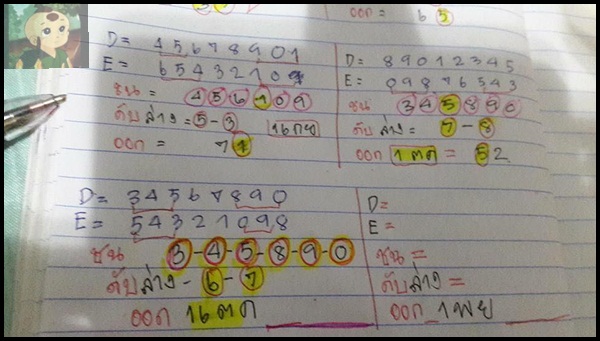 ออก = 6 5
D= 4 5 6 7 8 9 0 1
E= 6 5 4 3 2 1 0 9
ชน = 4 5 6 1 0 9
ดับล่าง = 5 - 3 16 กย
ออก = 7 1
D= 8 9 0 1 2 3 4 5
E= 0 9 8 7 6 5 4 3
ชน 3 4 5 8 9 0
ดับ ล่าง = 7 - 8
ออก 1 ตค = 5 2
D= 3 4 5 6 7 8 9 0
E= 5 4 3 2 1 0 9 8
ชน 3 - 4 - 5 - 8 - 9 - 0
ดับล่าง - 6 - 7
ออก 16 ตค
D=
E=
ชน =
ดับล่าง =
ออก 1 พย